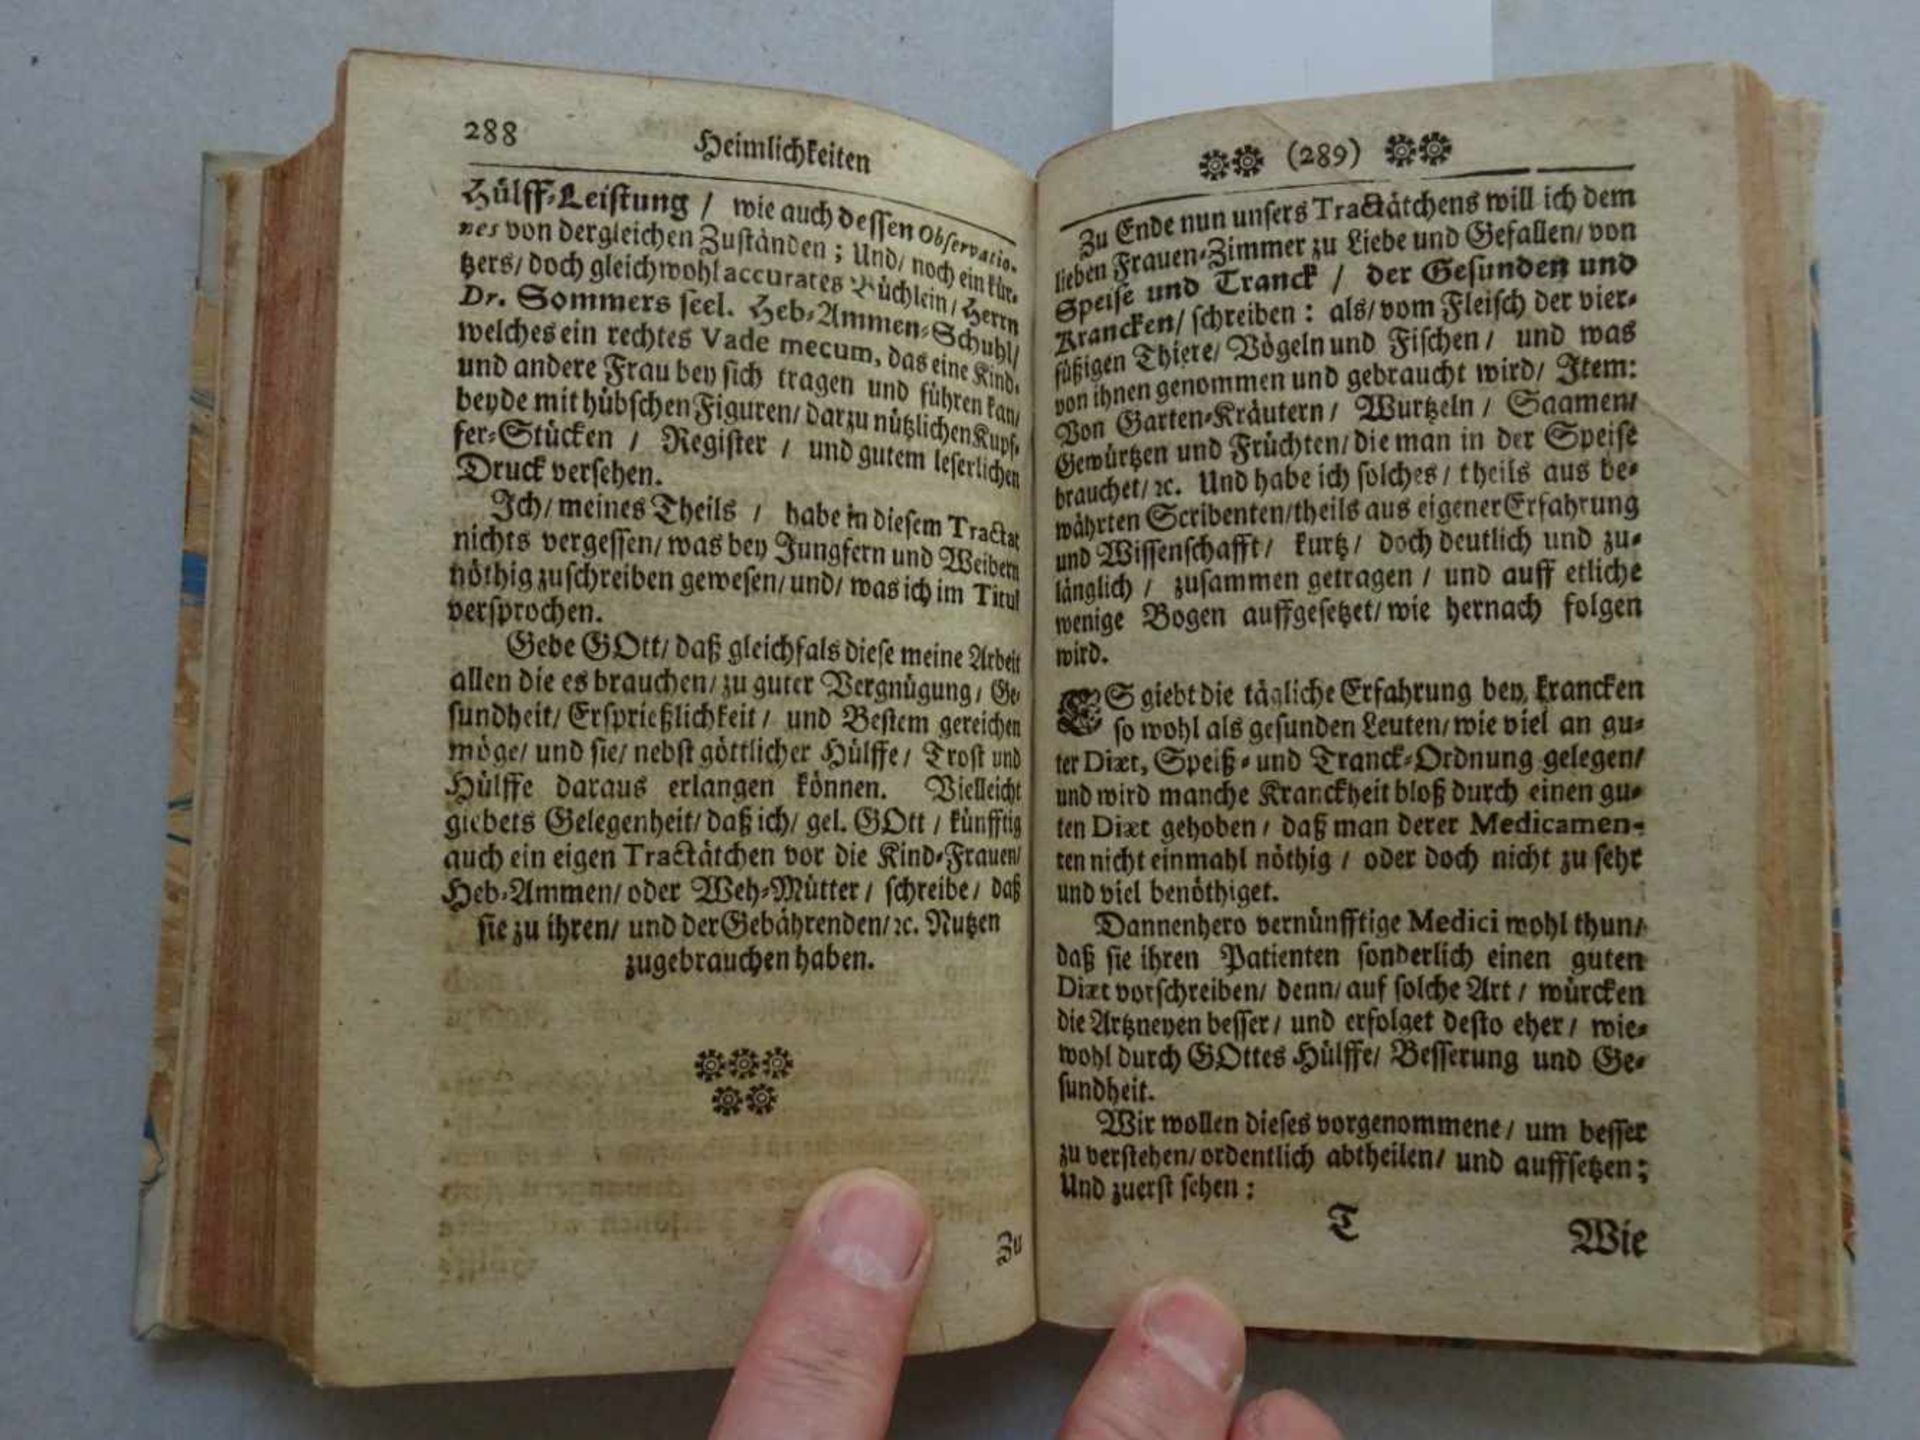 288 Heimlichkeiten
Hülff-Leistung / wie auch dessen Observatio-
nes von dergleichen Zuständen ; Und / noch ein kür-
tzers / doch gleichwohl accurates Büchlein / Herrn
Dr. Sommers seel. Heb-Ammen-Schuhl /
welches ein rechtes Vade mecum, das eine Kind-
und andere Frau bey sich tragen und führen kan /
beyde mit hübschen Figuren / darzu nützlichen Kupf-
fer-Stücken / Register / und gutem leserlichen
Druck versehen.
Ich / meines Theils / habe in diesem Tractat
nichts vergessen / was bey Jungfern und Weibern
nöthig zuschreiben gewesen / und / was ich im Titul
versprochen.
Gebe GOtt / daß gleichfals diese meine Arbeit
allen die es brauchen / zu guter Vergnügung / Ge-
sundheit / Ersprießlichkeit / und Bestem gereichen
möge / und sie / nebst göttlicher Hülffe / Trost und
Hülffe daraus erlangen können. Vielleicht
giebets Gelegenheit / daß ich / gel. GOtt / künfftig
auch ein eigen Tractätchen vor die Kind-Frauen /
Heb-Ammen / oder Weh-Mütter / schreibe / daß
sie zu ihren / und der Gebährenden / ꝛc. Nutzen
zugebrauchen haben.
Zu
(289)
Zu Ende nun unsers Tractätchens will ich dem
lieben Frauen-Zimmer zu Liebe und Gefallen / von
Speise und Tranck / der Gesunden und
Krancken / schreiben : als / vom Fleisch der vier-
füßigen Thiere / Vögeln und Fischen / und was
von ihnen genommen und gebraucht wird / Item:
Von Garten-Kräutern / Wurtzeln / Saamen /
Gewürtzen und Früchten / die man in der Speise
brauchet / ꝛc. Und habe ich solches / theils aus be-
währten Scribenten / theils aus eigener Erfahrung
und Wissenschafft / kurtz / doch deutlich und zu-
länglich / zusammen getragen / und auff etliche
wenige Bogen auffgesetzet / wie hernach folgen
wird.
ES giebt die tägliche Erfahrung bey krancken
so wohl als gesunden Leuten / wie viel an gu-
ter Diæt, Speiß- und Tranck-Ordnung gelegen /
und wird manche Kranckheit bloß durch einen gu-
ten Diæt gehoben / daß man derer Medicamen-
ten nicht einmahl nöthig / oder doch nicht zu sehr
und viel benöthiget.
Dannenhero vernünfftige Medici wohl thun /
daß sie ihren Patienten sonderlich einen guten
Diæt vorschreiben / denn / auf solche Art / würcken
die Artzneyen besser / und erfolget desto eher / wie-
wohl durch GOttes Hülffe / Besserung und Ge-
sundheit.
Wir wollen dieses vorgenommene / um besser
zu verstehen / ordentlich abtheilen / und auffsetzen ;
Und zuerst sehen :
T Wie